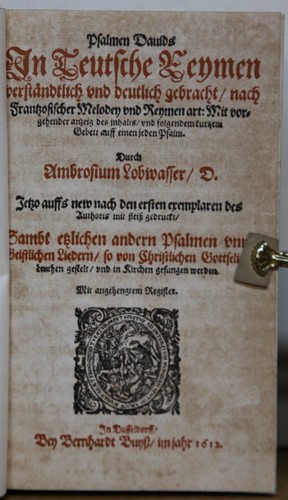 Psalmen Dauids
In Teutsche Reymen
verständtlich vnd deutlich gebracht/ nach
Frantzosischer Melodey vnd Reymen art: Mit vor-
gehender anzeig des inhalts/ vnd folgendem kurtzem
Gebett auff einen jeden Psalm.
Durch
Ambrosium Lobwasser/ D.
Jetzo auffs new nach den ersten exemplaren des
Authoris mit fleiß gedruckt/
Sambt etzlichen andern Psalmen vnd
Geistlichen Liedern/ so von Christlichen Gottseli-
leuthen gestelt/ vnd in Kirchen gesungen werden.
Mit angehengtem Register.
In Dusseldorff/
Bey Bernhardt Buyß/ im jahr 1612.